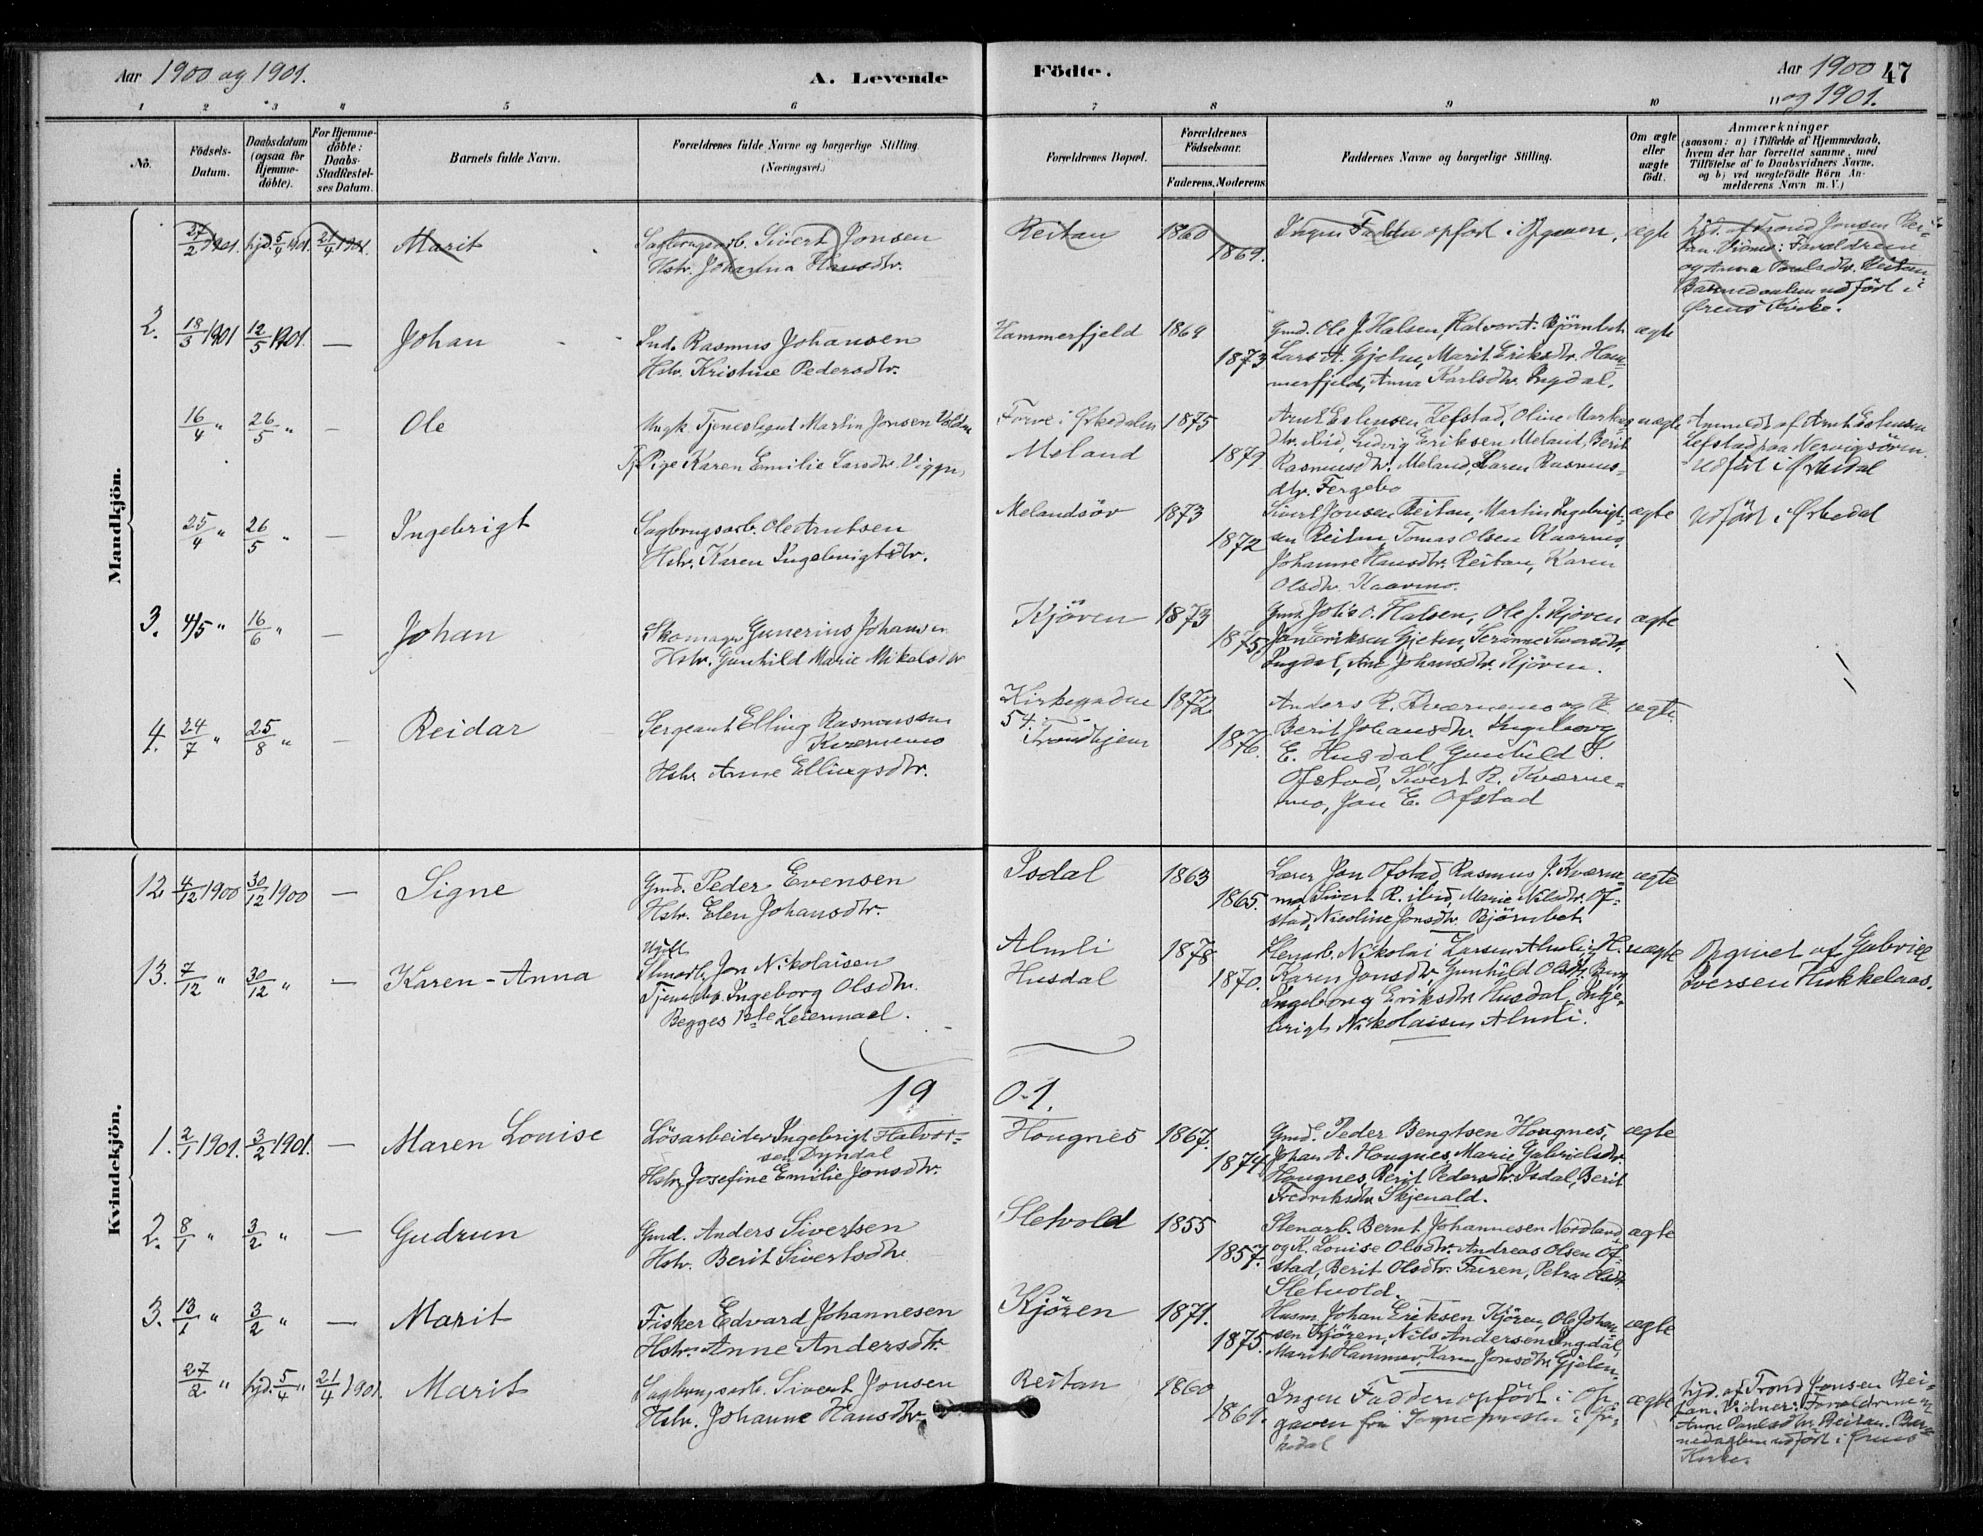 Aar 1900 og 1901.
A. Levende
Födte.
Aar 1900 47
og 1901.
1 2 3 4 5 6 7 8 9 10 11
No.
Födsels-
Datum.
Daabsdatum
(ogsaa for
Hjemme-
döbte).
For Hjemme-
döbte:
Daabs-
Stadfæstel-
ses Datum.
Barnets fulde Navn.
Forældrenes fulde Navne og borgerlige Stilling.
(Næringsvei.)
Forældrenes Bopæl.
Forældrenes
Födselsaar.
Faderens. Moderens.
Faddernes Navne og borgerlige Stilling.
Om ægte
eller
uægte
födt.
Anmærkninger
(saasom: a) i Tilfælde af Hjemmedaab,
hvem der har forrettet samme, med
Tilföielse af to Daabsvidners Navne,
og b) ved uægtefödte Börn An-
melderens Navn m. V.)
Mandkjön.
27/2 1901. hjd. 5/4 1901 21/4 1901. Marit
Sagbrugsarb. Sivert Jonsen
Hstr. Johanna Hansdtr.
Reitan 1860
1869.
Ingen Faddere opfört i Opgaven. ægte
hjd. af Trond Jonsen Rei-
tan. Vidner: Forældrene
og Anna Paulsdtr. Reitan.
Barnedaaben udfört i
Örens Kirke.
2. 18/3 1901 12/5 1901. — Johan
Ind. Rasmus Johansen
Hstr. Kristine Pedersdtr.
Hammerfjeld 1869
1873
Gmd. Ole J. Halsen, Halvor A. Björnbet
Lars A. Gjelen, Marit Eriksdtr. Ham-
merfjeld, Anna Karlsdtr. Ingdal.
ægte
16/4 " 26/5 " — Ole
Ungk. Tjenestegut Martin Jonsen
Pige Karen Emilie Larsdtr. Viggen
Forve i Örkedalen 1875
Meland 1879
Arnt Estensen Lefstad, Oline
dtr. ibid, Ludvig Eriksen Meland, Berit
Rasmusdtr. Meland, Karen Rasmus-
dtr. Fergebo
uægte
Anmeldt af Arnt Estensen
Lefstad paa
Udfört i Örkedal
25/4 " 26/5 " — Ingebrigt
Sagbrugsarb. Ole Arntsen
Hstr. Karen Ingebrigtsdtr.
Melandsöv 1873
1872
Sivert Jonsen Reitan, Martin Ingebrigt-
sen Reitan, Tomas Olsen Kaarmo,
Johanne Hansdtr. Reitan, Karen
Olsdtr. Kaarmo.
ægte
Udfört i Örkedal
3. 4/5 " 16/6 " — Johan
Skomager Gunerius Johansen
Hstr. Gunhild Marie Mikalsdtr
Kjören 1873
1875
Halsen, Ole J. Kjören
Jon Eriksen Gjelen, Serine Siversdtr.
Ingdal, Ane Johansdtr. Kjören.
ægte
4. 24/7 " 25/8 " Reidar
Sergeant Elling Rasmussen
Kværnemo
Hstr. Anne Ellingsdtr.
Kirkegaden
54.
Trondhjem
1872
1876.
Anders R. Kværnemo og K.
Berit Johansdtr. Ingeborg
E. Husdal, Gunhild J.
Ofstad, Sivert R. Kværne-
mo, Jon E. Ofstad
ægte.
Kvindekjön.
12 4/12 1900 30/12 1900 — Signe
Gmd. Peder Evensen
Hstr. Elen Johansdtr.
Isdal 1863
1865.
Lærer Jon Ofstad, Rasmus J. Kværne-
mo, Sivert R. ibid, Marie Nilsdtr. Of-
stad, Nicoline Jonsdtr Björnbet.
ægte
13. 7/12 " 30/12 " — Karen-Anna
Ugift
Stenarb. Jon Nikolaisen
Tjenestep. Ingeborg Olsdtr.
Begges 1ste Leiermaal.
Almli 1878
Husdal 1870.
Stenarb. Nikolai Larsen Almli, H.
Karen Jonsdtr., Gunhild Olsdtr. Berg,
Ingeborg Eriksdtr. Husdal, Inge-
brigt Nikolaisen Almli.
uægte
Opgivet af Gabriel
Iversen Hukkelaas.
19 01.
1. 2/1 1901. 3/2 1901. — Maren Louise
Lösarbeider Ingebrigt Halvor-
sen Dyndal
Hstr. Josefine Emilie Jonsdtr.
Hougnes 1867.
1874
Gmd. Peder Bengtsen Hougnes,
Johan A. Hougnes, Marie Gabrielsdtr.
Hougnes, Berit Pedersdtr. Isdal, Berit
Fredriksdtr. Skjenald.
ægte
2. 8/1 " 3/2 " — Gudrun
Gmd. Anders Sivertsen
Hstr. Berit Sivertsdtr
Sletvold 1855
1857.
Stenarb. Bernt Johannesen Nordland
og K. Louise Olsdtr. Andreas Olsen Of-
stad, Berit Olsdtr. Furen, Petra Olsdtr.
Sletvold.
ægte
3. 13/1 " 3/2 " — Marit
Fisker Edvard Johannesen
Hstr. Anne Andersdtr.
Kjören 1871.
1875.
Husm. Johan Eriksen Kjören, Ole Johan-
sen Kjören, Nils Andersen Ingdal,
Marit Hammer, Karen Jonsdtr. Gjelen.
ægte
27/2 " hjd. 5/4 " 21/4 1901. Marit
Sagbrugsarb. Sivert Jonsen
Hstr. Johanne Hansdtr.
Reitan 1860
1869.
Ingen Faddere opfört i Op-
gaven fra Sognepresten i Ör-
kedal
ægte
hjd. af Trond Jonsen Rei-
tan. Vidner: Forældrene og
Anne Paulsdtr. Reitan. Bar-
nedaaben udfört i Örens
Kirke.